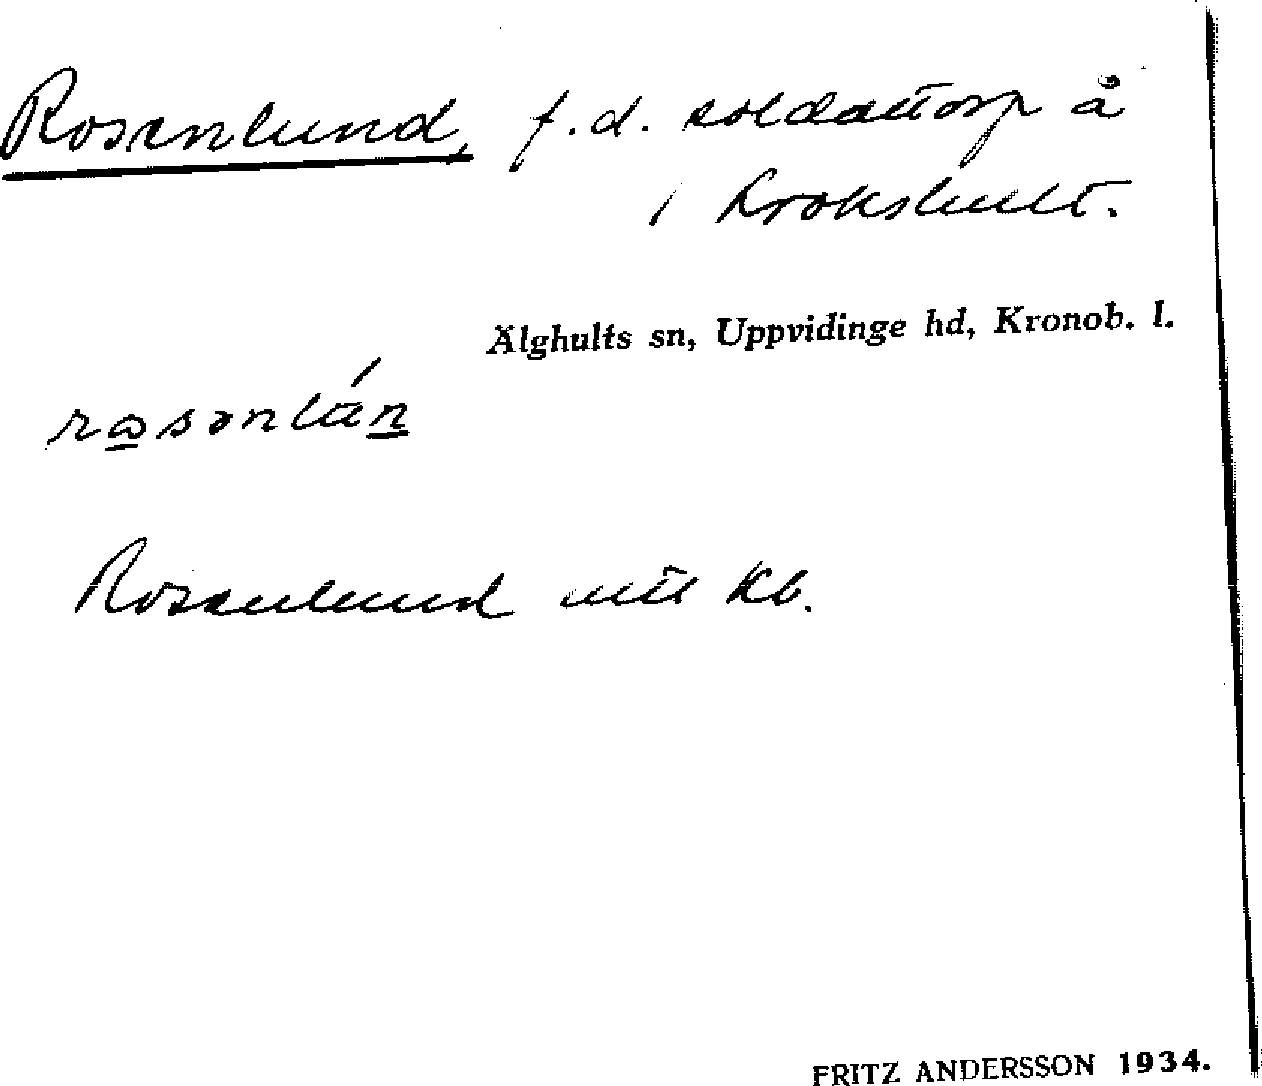 Rosenlund, f.d. soldattorp å
Krokshult.
Älghults sn, Uppvidinge hd, Kronob. l.
Rosenlund utt Kb.
FRITZ ANDERSSON 1934.